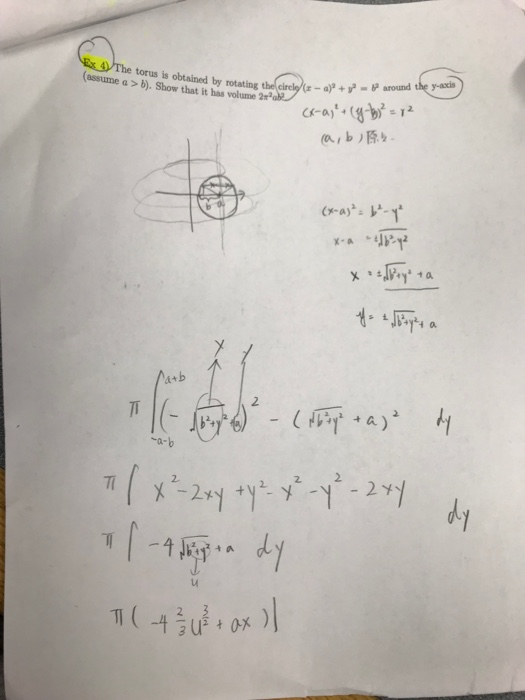 Ex 4) The torus is obtained by rotating the circle (x − a)² + y² = b² around the y-axis
(assume a > b). Show that it has volume 2π²ab².
(x-a)² + (y-b)² = r²
(a, b)
b a
(x-a)² = b²-y²
x-a = ±√b²-y²
x = ±√b²+y² + a
y = ±√b²+y² + a
x y
π ∫ a+b -a-b (- √b²+y² + a)² - (√b²+y² + a)² dy
π ∫ x²-2xy+y²-x²-y²-2xy dy
π ∫ -4√b²+y² + a dy
u
π ( -4 2/3 u^3/2 + ax )|